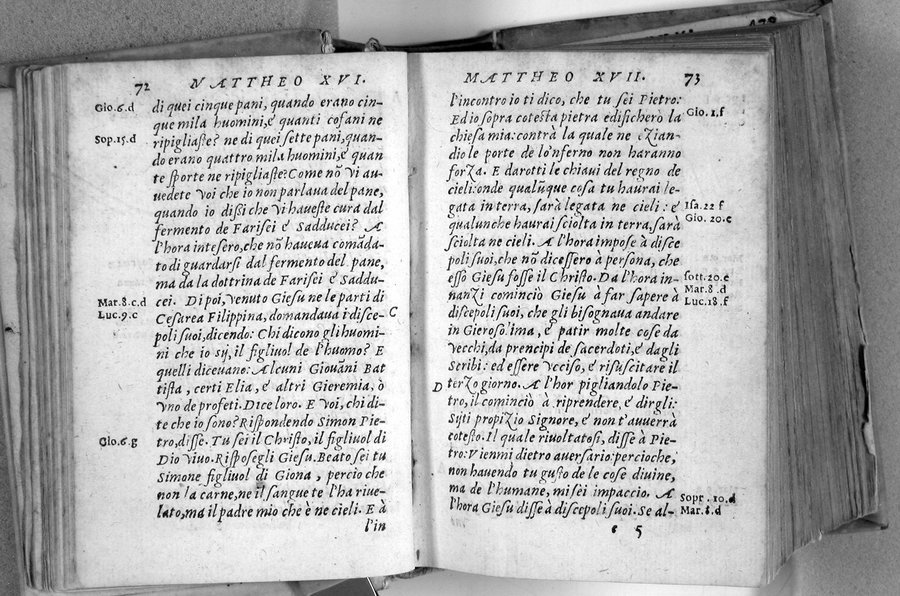 72 MATTHEO XVI.
Gio.6.d
di quei cinque pani, quando erano cin-
que mila huomini,e quanti cofani ne
Sop.15.d
ripigliaste? ne di quei sette pani,quan-
do erano quattro mila huomini,e quan
te sporte ne ripigliaste? Come nō vi au-
uedete voi che io non parlaua del pane,
quando io dißi che vi haueste cura dal
fermento de Farisei e Sadducei? A
l'hora intesero,che nō haueua comāda-
to di guardarsi dal fermento del pane,
ma da la dottrina de Farisei e Saddu-
Mar.8.c.d
cei. Di poi,venuto Giesu ne le parti di
Luc.9.c
Cesarea Filippina,domandaua i disce-
C
poli suoi, dicendo: Chi dicono gli huomi-
ni che io sij, il figliuol de l'huomo? E
quelli diceuano: Alcuni Giouāni Bat
tista, certi Elia, e altri Gieremia, ò
vno de profeti. Dice loro. E voi, chi di-
te che io sono? Rispondendo Simon Pie-
Gio.6.g
tro,disse. Tu sei il Christo, il figliuol di
Dio viuo. Risposegli Giesu. Beato sei tu
Simone figliuol di Giona, percio che
non la carne,ne il sangue te l'ha riue-
lato,ma il padre mio che è ne cieli. E à
l'in
MATTHEO XVII. 73
l'incontro io ti dico, che tu sei Pietro:
Ed io sopra cotesta pietra edificherò la
Gio. 1.f
chiesa mia: contrà la quale ne eZian-
dio le porte de lo'nferno non haranno
forZa. E darotti le chiaui del regno de
cieli: onde qualūque cosa tu haurai le-
gata in terra, sarà legata ne cieli: e
Isa.22 f
qualunche haurai sciolta in terra, sarà
Gio. 20.e
sciolta ne cieli. A l'hora impose à disce
poli suoi,che nō dicessero à persona, che
esso Giesu fosse il Christo. Da l'hora in-
sott.20.e
nanZi cominciò Giesu à far sapere à
Mar.8.d
discepoli suoi, che gli bisognaua andare
Luc.18.f
in Gierosolima, e patir molte cose da
vecchi,da prencipi de sacerdoti,e dagli
Scribi: ed essere vcciso, e risuscitare il
D
terzo giorno. A l'hor pigliandolo Pie-
tro, il cominciò à riprendere, e dirgli:
Sijti propiZio Signore, e non t'auuerrà
cotesto. Il quale riuoltatosi, disse à Pie-
tro: Vienmi dietro auersario: percioche,
non hauendo tu gusto de le cose diuine,
ma de l'humane, mi sei impaccio. A
Sopr. 10.d
l'hora Giesu disse à discepoli suoi. Se al-
Mar.8.d
e 5